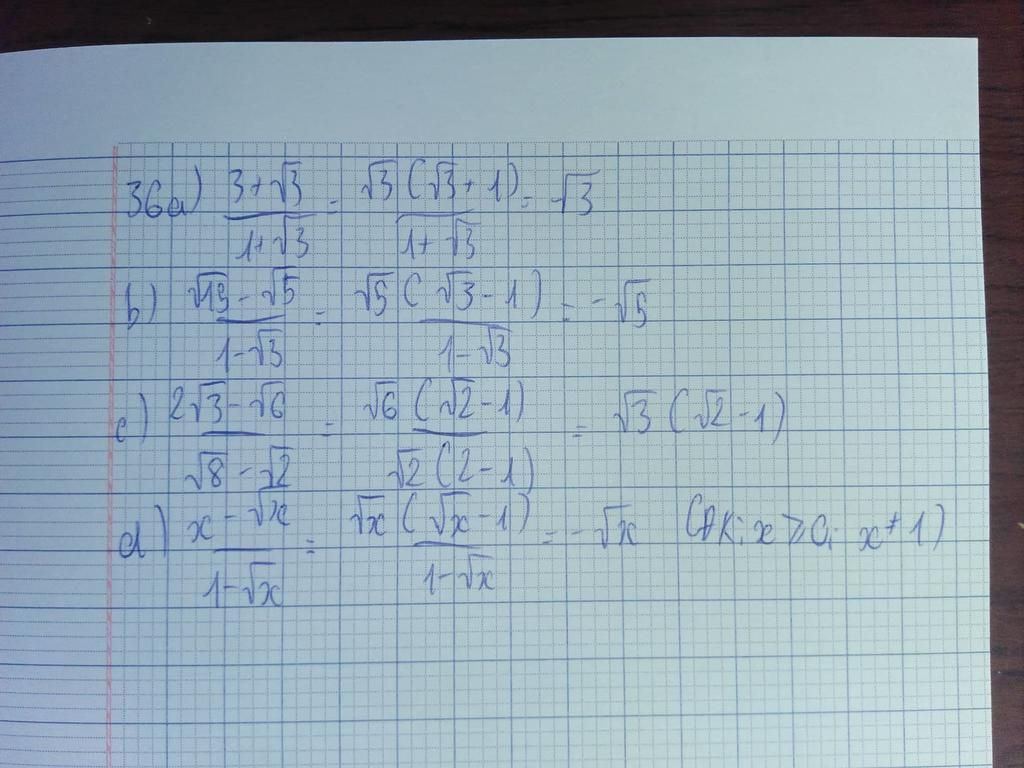 36a) (3+√3)/(1+√3) = √3(√3+1)/(1+√3) = √3
b) (√15-√5)/(1-√3) = √5(√3-1)/(1-√3) = -√5
c) (2√3-√6)/(√8-√2) = √6(√2-1)/(√2(2-1)) = √3(√2-1)
d) (x-√x)/(1-√x) = √x(√x-1)/(1-√x) = -√x (ĐK: x≥0; x≠1)